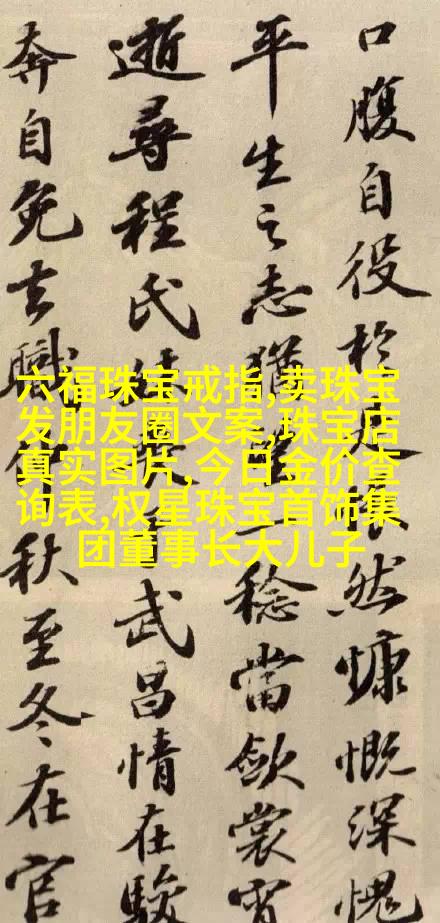 口腹自役於是悵然慷慨深愧
平生之志猶望一稔當斂裳宵
逝尋程氏妹喪于武昌情在駿
奔自免去職仲秋至冬在官
六福珠宝戒指,卖珠宝
发朋友圈文案,珠宝店
真实图片,今日金价查
询表,权星珠宝首饰集
团董事长大儿子